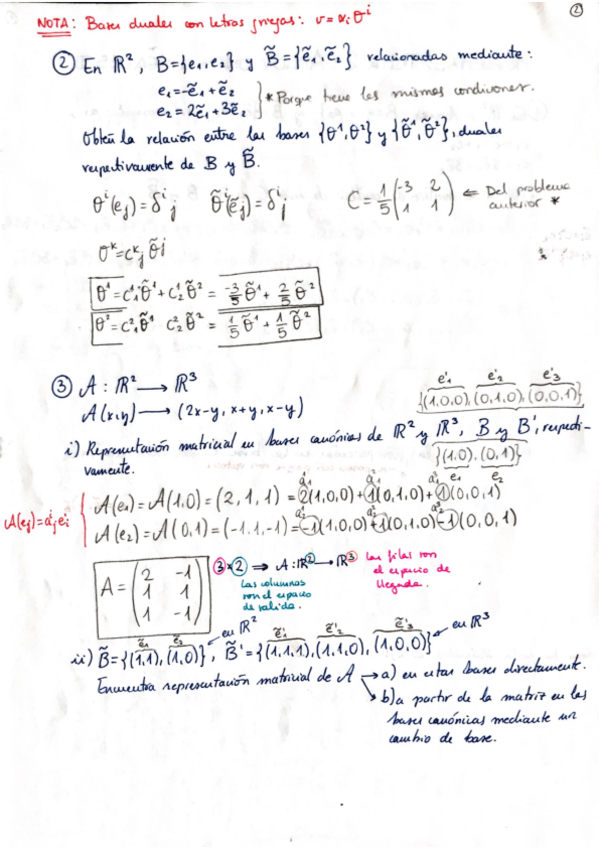 ②
NOTA: Bases duales con letras griegas: v = αᵢ θⁱ
② En ℝ², B={e₁,e₂} y B̃={ẽ₁,ẽ₂} relacionadas mediante:
e₁=-ẽ₁+ẽ₂
e₂=2ẽ₁+3ẽ₂
* Porque tiene las mismas condiciones.
Obtén la relación entre las bases {θ¹,θ²} y {θ̃¹,θ̃²}, duales
respectivamente de B y B̃.
θⁱ(eⱼ)=δⁱⱼ θ̃ⁱ(ẽⱼ)=δⁱⱼ C=1/5 (-3 2 / 1 1) ⇐ Del problema anterior *
θᵏ=cᵏⱼ θ̃ʲ
θ¹=C¹₁θ̃¹+C¹₂θ̃² = -3/5 θ̃¹ + 2/5 θ̃²
θ²=C²₁θ̃¹ C²₂θ̃² = 1/5 θ̃¹ + 1/5 θ̃²
③ A: ℝ² ⟶ ℝ³
A(x,y) ⟶ (2x-y, x+y, x-y)
e'₁ e'₂ e'₃
{(1,0,0), (0,1,0), (0,0,1)}
i) Representación matricial en bases canónicas de ℝ² y ℝ³, B y B', respecti-
vamente.
{(1,0), (0,1)}
e₁ e₂
A(eⱼ)=aⁱⱼ e'ᵢ
A(e₁)=A(1,0)=(2,1,1)=2(1,0,0)+1(0,1,0)+1(0,0,1)
A(e₂)=A(0,1)=(-1,1,-1)=-1(1,0,0)+1(0,1,0)-1(0,0,1)
A = (2 -1 / 1 1 / 1 -1)
3×2 ⇒ A: ℝ² ⟶ ℝ³
Las columnas son el espacio de salida.
Las filas son el espacio de llegada.
ẽ₁ ẽ₂ en ℝ² ẽ'₁ ẽ'₂ ẽ'₃ en ℝ³
ii) B̃={(1,1),(1,0)}, B̃'={(1,1,1),(1,1,0),(1,0,0)}
Encuentra representación matricial de A → a) en estas bases directamente.
→ b) a partir de la matriz en las
bases canónicas mediante un
cambio de base.